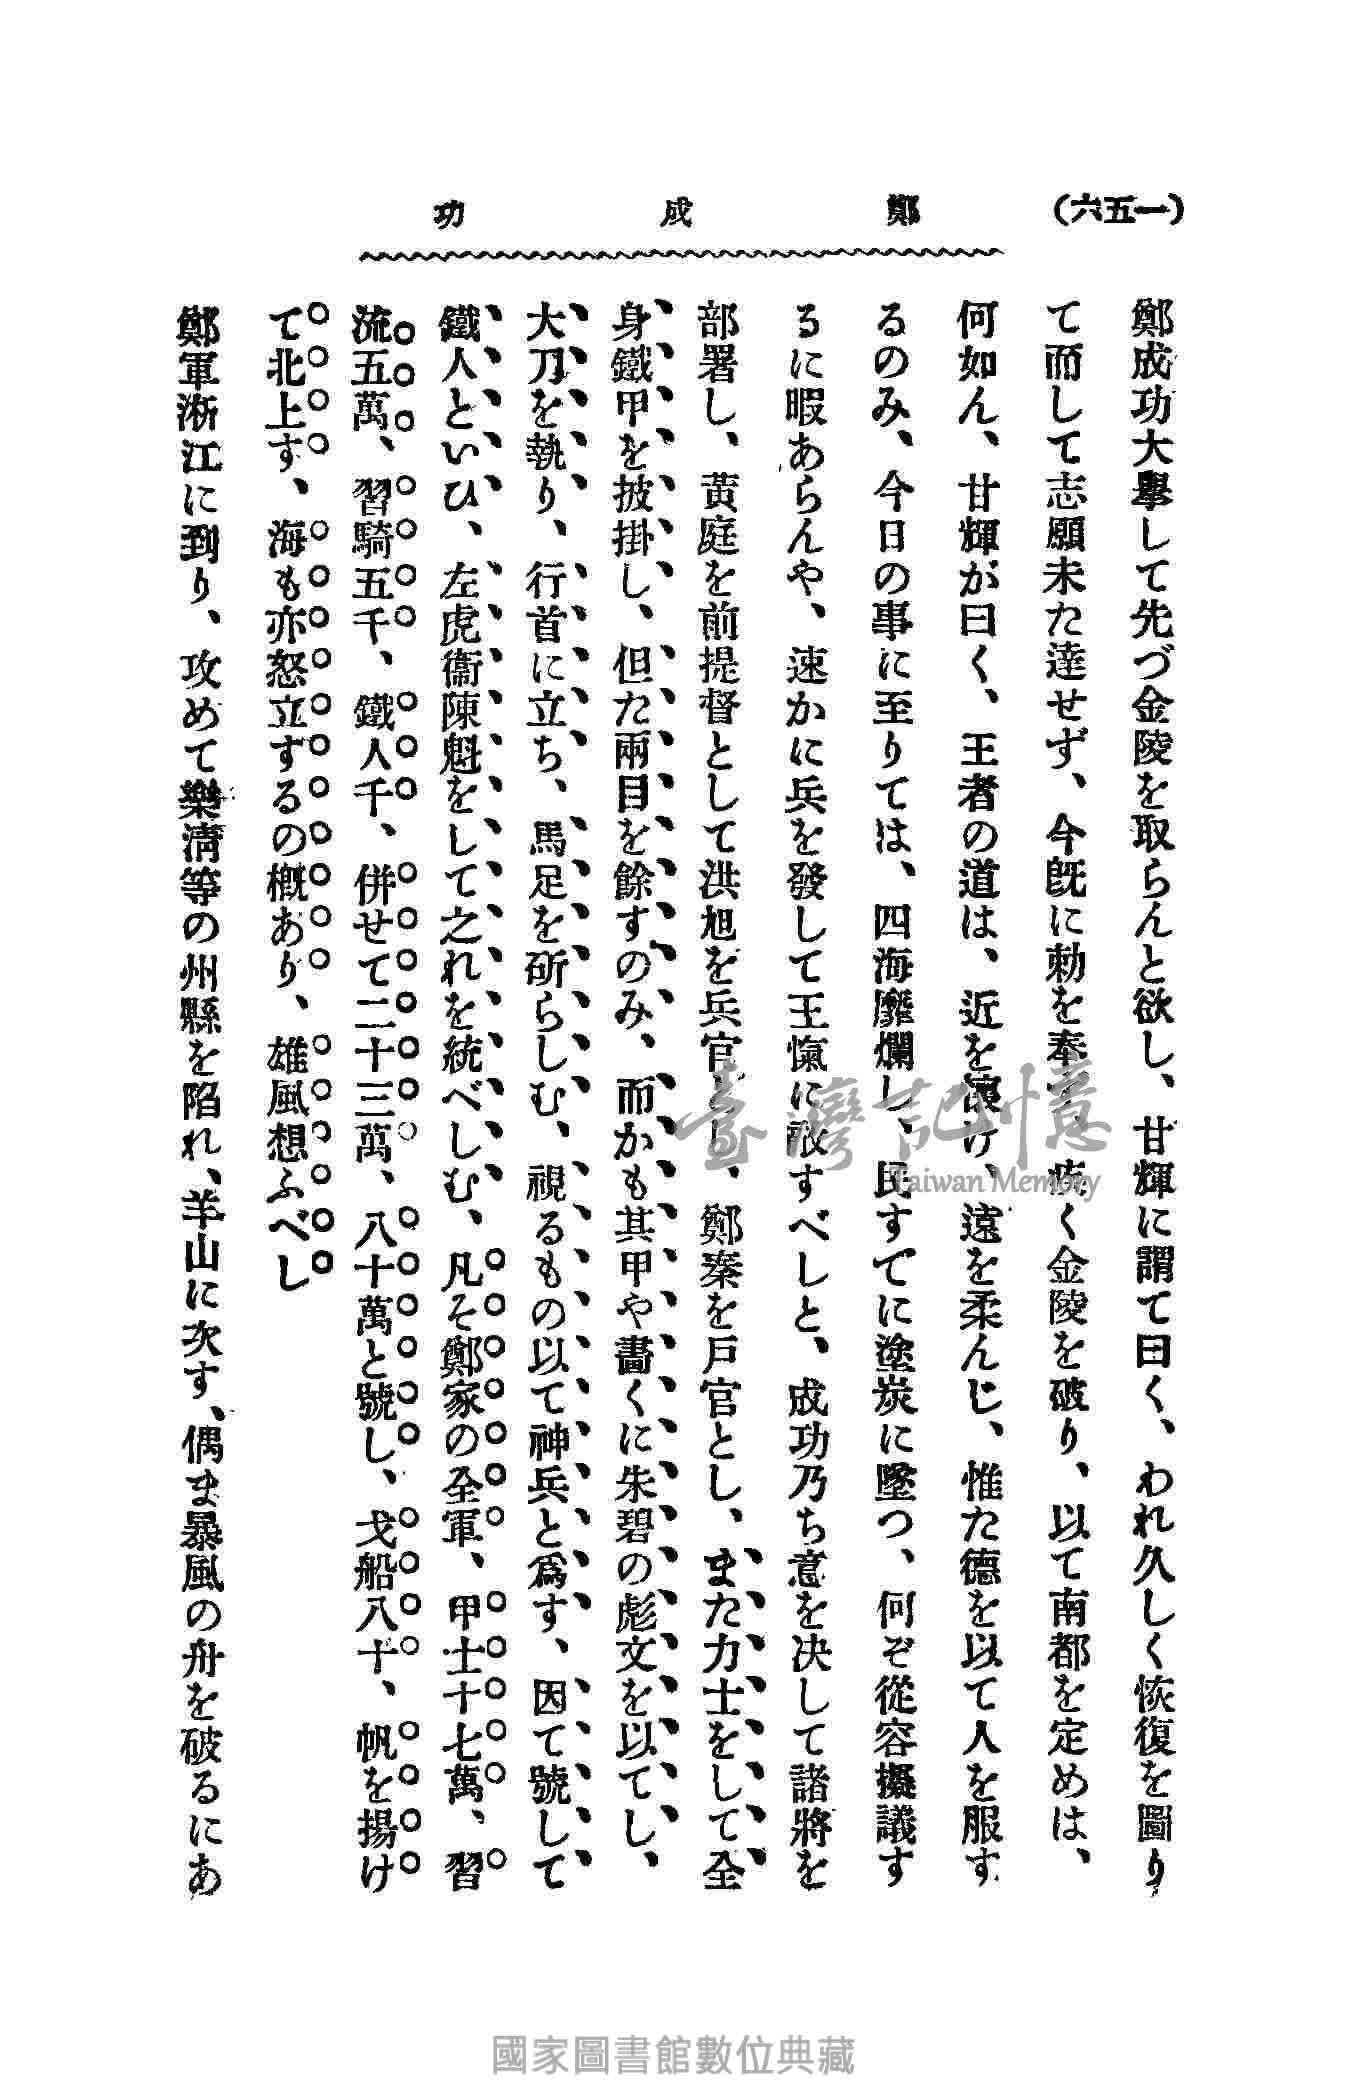 (一五六)
鄭成功
鄭成功大擧して先づ金陵を取らんと欲し、甘輝に謂て曰く、われ久しく恢復を圖り
て而して志願未た達せず、今旣に勅を奉す、疾く金陵を破り、以て南都を定めは、
何如ん、甘輝が曰く、王者の道は、近を懷け、遠を柔んじ、惟た德を以て人を服す
るのみ、今日の事に至りては、四海靡爛し、民すでに塗炭に墜つ、何ぞ從容擬議す
るに暇あらんや、速かに兵を發して王愾に敵すべしと、成功乃ち意を决して諸將を
部署し、黃庭を前提督として洪旭を兵官とし、鄭秦を戶官とし、また力士をして全
身鐵甲を披掛し、但た兩目を餘すのみ、而かも其甲や畵くに朱碧の彪文を以てし、
大刀を執り、行首に立ち、馬足を斫らしむ、視るもの以て神兵と爲す、因て號して
鐵人といひ、左虎衞陳魁をして之れを統べしむ、凡そ鄭家の全軍、甲士十七萬、習
流五萬、習騎五千、鐵人千、併せて二十三萬、八十萬と號し、戈船八十、帆を揚け
て北上す、海も亦怒立するの槪あり、雄風想ふべし
鄭軍淅江に到り、攻めて樂淸等の州縣を陷れ、羊山に次す、偶ま暴風の舟を破るにあ
臺灣記憶
Taiwan Memory
國家圖書館數位典藏